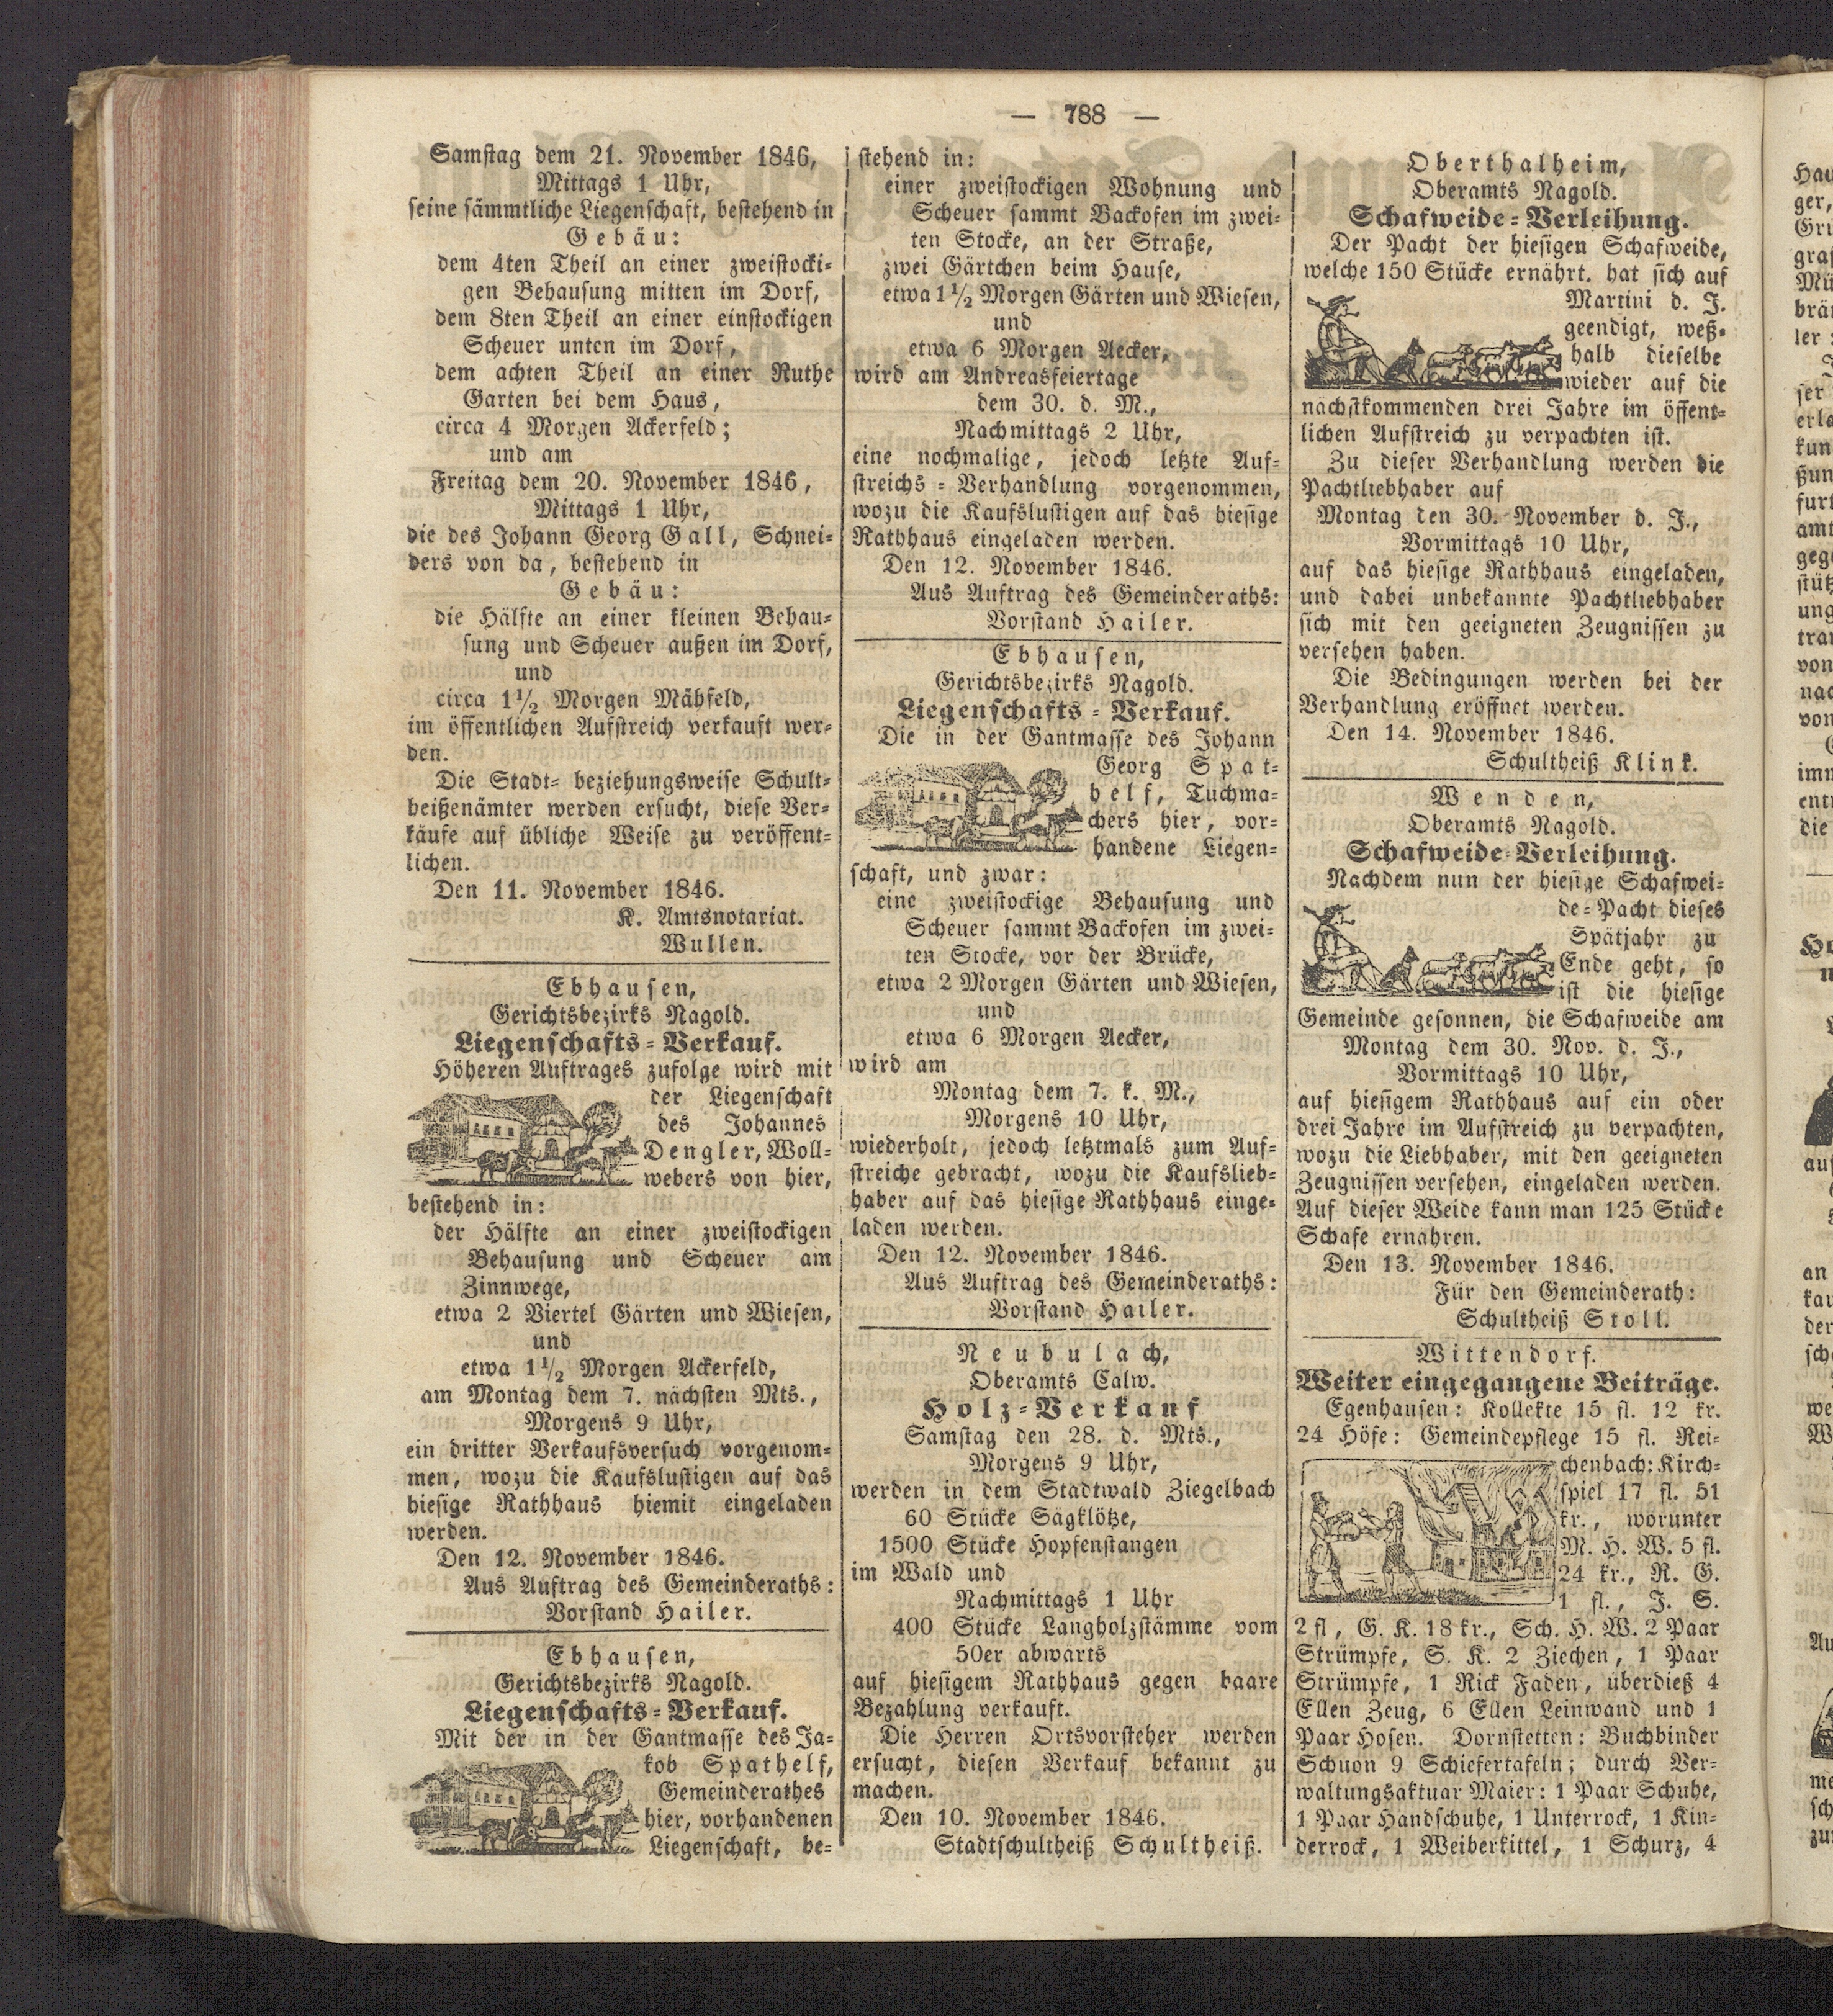 — 788 —
Samstag dem 21. November 1846,
Mittags 1 Uhr,
seine sämmtliche Liegenschaft, bestehend in
Gebäu:
dem 4ten Theil an einer zweistocki-
gen Behausung mitten im Dorf,
dem 8ten Theil an einer einstockigen
Scheuer unten im Dorf,
dem achten Theil an einer Ruthe
Garten bei dem Haus,
circa 4 Morgen Ackerfeld;
und am
Freitag dem 20. November 1846,
Mittags 1 Uhr,
die des Johann Georg Gall, Schnei-
ders von da, bestehend in
Gebäu:
die Hälfte an einer kleinen Behau-
sung und Scheuer außen im Dorf,
und
circa 1½ Morgen Mähfeld,
im öffentlichen Aufstreich verkauft wer-
den.
Die Stadt- beziehungsweise Schult-
heißenämter werden ersucht, diese Ver-
käufe auf übliche Weise zu veröffent-
lichen.
Den 11. November 1846.
K. Amtsnotariat.
Wullen.
Ebhausen,
Gerichtsbezirks Nagold.
Liegenschafts-Verkauf.
Höheren Auftrages zufolge wird mit
der Liegenschaft
des Johannes
Dengler, Woll-
webers von hier,
bestehend in:
der Hälfte an einer zweistockigen
Behausung und Scheuer am
Zinnwege,
etwa 2 Viertel Gärten und Wiesen,
und
etwa 1½ Morgen Ackerfeld,
am Montag dem 7. nächsten Mts.,
Morgens 9 Uhr,
ein dritter Verkaufsversuch vorgenom-
men, wozu die Kaufslustigen auf das
hiesige Rathhaus hiemit eingeladen
werden.
Den 12. November 1846.
Aus Auftrag des Gemeinderaths:
Vorstand Hailer.
Ebhausen,
Gerichtsbezirks Nagold.
Liegenschafts-Verkauf.
Mit der in der Gantmasse des Ja-
kob Spathelf,
Gemeinderathes
hier, vorhandenen
Liegenschaft, be-
stehend in:
einer zweistockigen Wohnung und
Scheuer sammt Backofen im zwei-
ten Stocke, an der Straße,
zwei Gärtchen beim Hause,
etwa 1½ Morgen Gärten und Wiesen,
und
etwa 6 Morgen Aecker,
wird am Andreasfeiertage
dem 30. d. M.,
Nachmittags 2 Uhr,
eine nochmalige, jedoch letzte Auf-
streichs-Verhandlung vorgenommen,
wozu die Kaufslustigen auf das hiesige
Rathhaus eingeladen werden.
Den 12. November 1846.
Aus Auftrag des Gemeinderaths:
Vorstand Hailer.
Ebhausen,
Gerichtsbezirks Nagold.
Liegenschafts-Verkauf.
Die in der Gantmasse des Johann
Georg Spat-
helf, Tuchma-
chers hier, vor-
handene Liegen-
schaft, und zwar:
eine zweistockige Behausung und
Scheuer sammt Backofen im zwei-
ten Stocke, vor der Brücke,
etwa 2 Morgen Gärten und Wiesen,
und
etwa 6 Morgen Aecker,
wird am
Montag dem 7. k. M.,
Morgens 10 Uhr,
wiederholt, jedoch letztmals zum Auf-
streiche gebracht, wozu die Kaufslieb-
haber auf das hiesige Rathhaus einge-
laden werden.
Den 12. November 1846.
Aus Auftrag des Gemeinderaths:
Vorstand Hailer.
Neubulach,
Oberamts Calw.
Holz-Verkauf
Samstag den 28. d. Mts.,
Morgens 9 Uhr,
werden in dem Stadtwald Ziegelbach
60 Stücke Sägklötze,
1500 Stücke Hopfenstangen
im Wald und
Nachmittags 1 Uhr
400 Stücke Langholzstämme vom
50er abwärts
auf hiesigem Rathhaus gegen baare
Bezahlung verkauft.
Die Herren Ortsvorsteher werden
ersucht, diesen Verkauf bekannt zu
machen.
Den 10. November 1846.
Stadtschultheiß Schultheiß.
Oberthalheim,
Oberamts Nagold.
Schafweide-Verleihung.
Der Pacht der hiesigen Schafweide,
welche 150 Stücke ernährt. hat sich auf
Martini d. J.
geendigt, weß-
halb dieselbe
wieder auf die
nächstkommenden drei Jahre im öffent-
lichen Aufstreich zu verpachten ist.
Zu dieser Verhandlung werden die
Pachtliebhaber auf
Montag den 30. November d. J.,
Vormittags 10 Uhr,
auf das hiesige Rathhaus eingeladen,
und dabei unbekannte Pachtliebhaber
sich mit den geeigneten Zeugnissen zu
versehen haben.
Die Bedingungen werden bei der
Verhandlung eröffnet werden.
Den 14. November 1846.
Schultheiß Klink.
Wenden,
Oberamts Nagold.
Schafweide-Verleihung.
Nachdem nun der hiesige Schafwei-
de-Pacht dieses
Spätjahr zu
Ende geht, so
ist die hiesige
Gemeinde gesonnen, die Schafweide am
Montag dem 30. Nov. d. J.,
Vormittags 10 Uhr,
auf hiesigem Rathhaus auf ein oder
drei Jahre im Aufstreich zu verpachten,
wozu die Liebhaber, mit den geeigneten
Zeugnissen versehen, eingeladen werden.
Auf dieser Weide kann man 125 Stücke
Schafe ernähren.
Den 13. November 1846.
Für den Gemeinderath:
Schultheiß Stoll.
Wittendorf.
Weiter eingegangene Beiträge.
Egenhausen: Kollekte 15 fl. 12 kr.
24 Höfe: Gemeindepflege 15 fl. Rei-
chenbach: Kirch-
spiel 17 fl. 51
kr., worunter
M. H. W. 5 fl.
24 kr., R. G.
1 fl., J. S.
2 fl, G. K. 18 kr., Sch. H. W. 2 Paar
Strümpfe, S. K. 2 Ziechen, 1 Paar
Strümpfe, 1 Rick Faden, überdieß 4
Ellen Zeug, 6 Ellen Leinwand und 1
Paar Hosen. Dornstetten: Buchbinder
Schuon 9 Schiefertafeln; durch Ver-
waltungsaktuar Maier: 1 Paar Schuhe,
1 Paar Handschuhe, 1 Unterrock, 1 Kin-
derrock, 1 Weiberkittel, 1 Schurz, 4